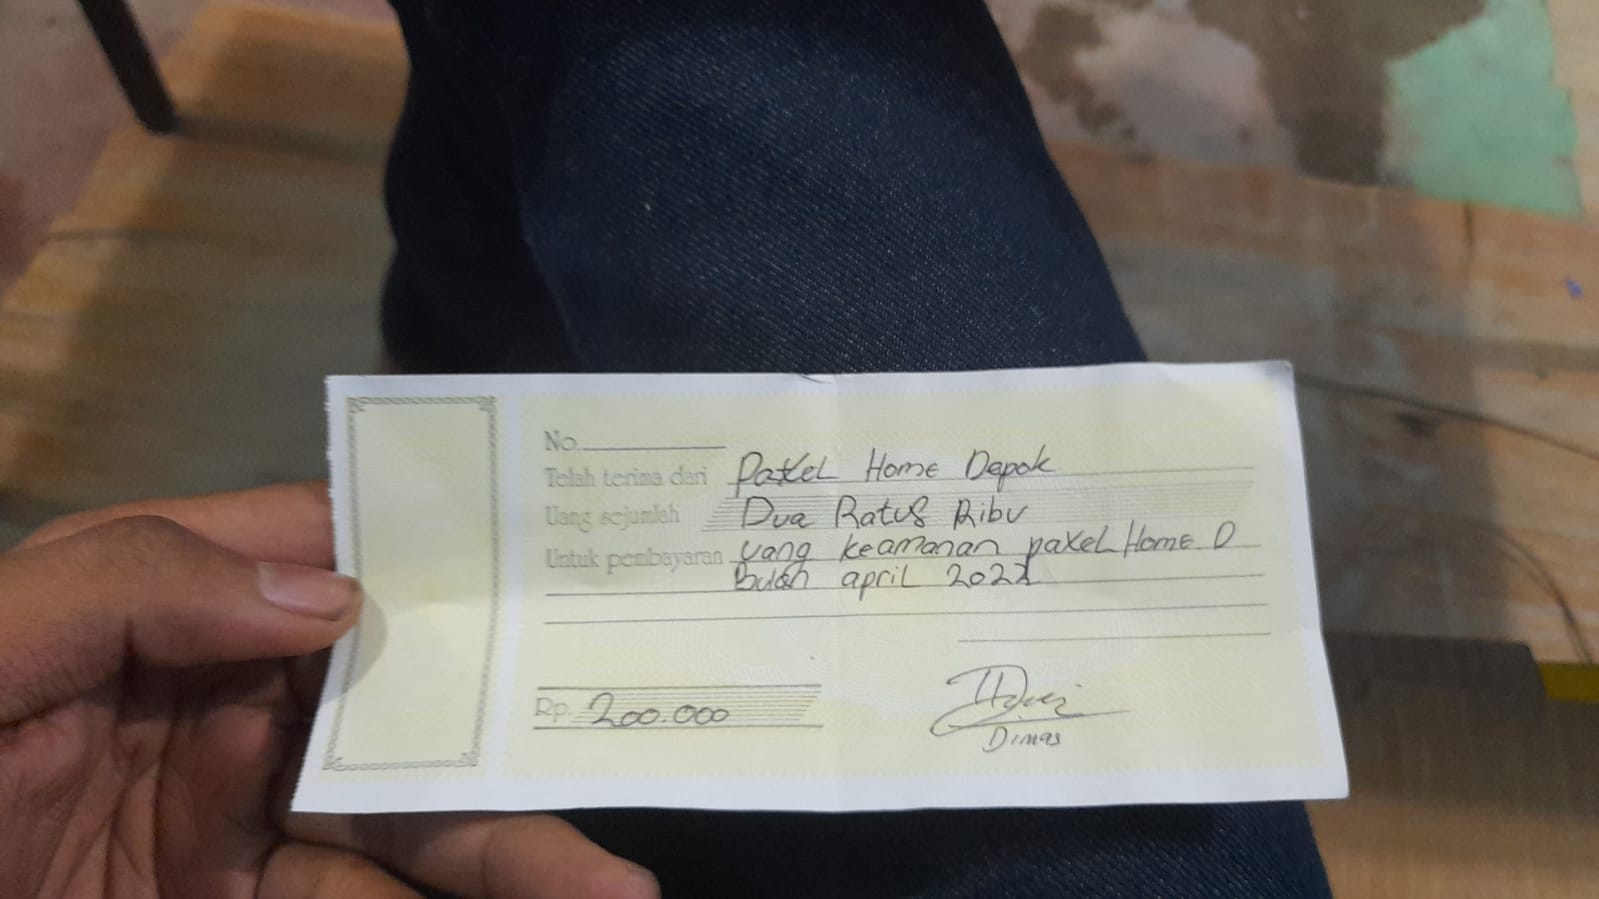 No.
Telah terima dari Paxel Home Depok
Uang sejumlah Dua Ratus Ribu
Untuk pembayaran uang keamanan paxel Home. D
Bulan april 2022
Rp. 200.000
Dimas